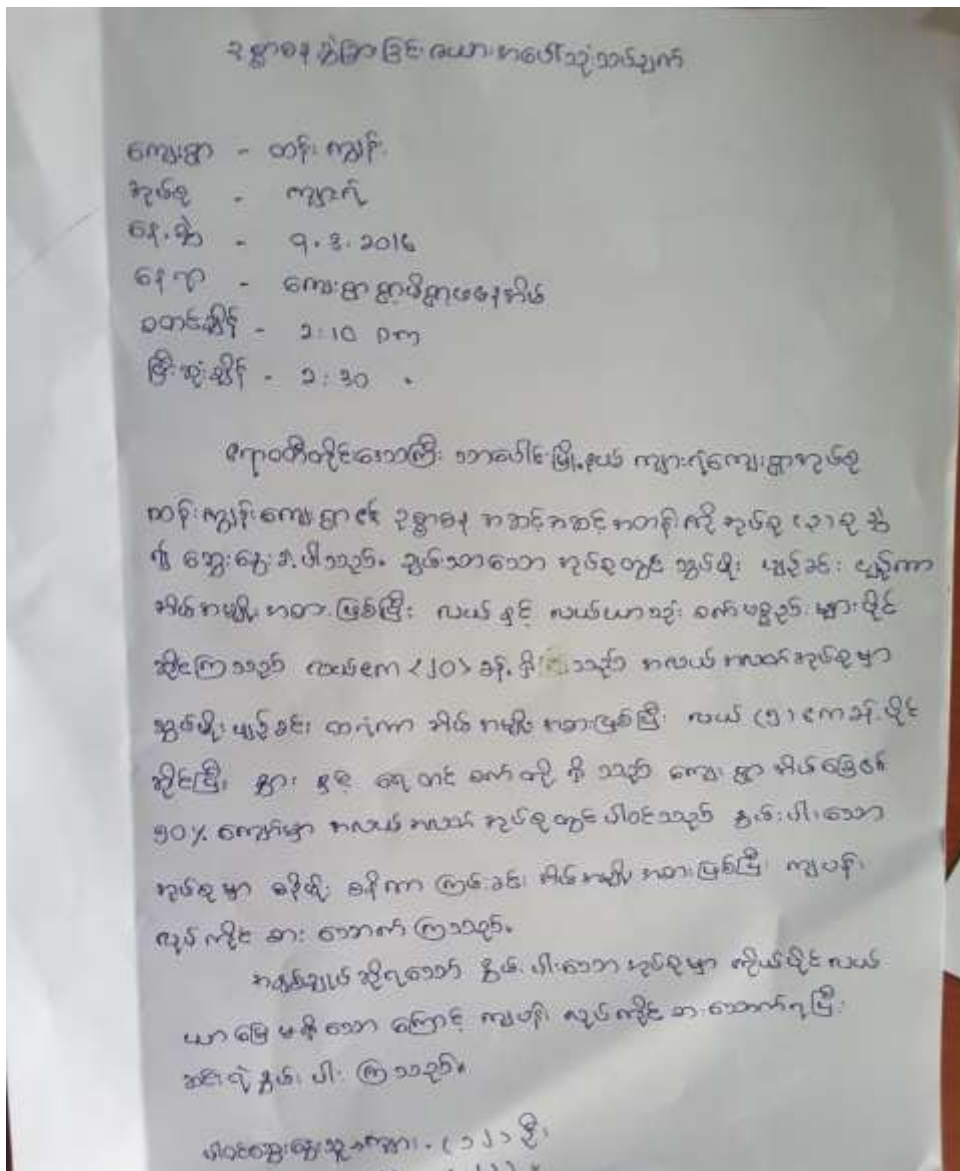 ဥစ္စာဓန ခွဲခြားခြင်း ဇယားအပေါ်သုံးသပ်ချက်
ကျေးရွာ - ထန်းကျွန်း
အုပ်စု - ကျားရဲ
နေ့စွဲ - ၅.၃.2016
နေရာ - ကျေးရွာ ရွာမိရွာဖနေအိမ်
စတင်ချိန် - 2:10 pm
ပြီးဆုံးချိန် - 2:30 〃
ဧရာဝတီတိုင်းဒေသကြီး သာပေါင်းမြို့နယ် ကျားရဲကျေးရွာအုပ်စု
ထန်းကျွန်းကျေးရွာ၏ ဥစ္စာဓန အဆင့်အတန်းကို အုပ်စု (၃) စု ခွဲ
၍ ဆွေးနွေးခဲ့ပါသည်။ ချမ်းသာသော အုပ်စုတွင် သွပ်မိုး ပျဉ်ခင်း ပျဉ်ကာ
အိမ်အမျိုးအစားဖြစ်ပြီး လယ်နှင့် လယ်ယာသုံး စက်ပစ္စည်းများပိုင်
ဆိုင်ကြသည် လယ်ဧက <၂၀> ခန့်ရှိသည် အလယ်အလတ်အုပ်စုမှာ
သွပ်မိုး ပျဉ်ခင်း ထရံကာ အိမ်အမျိုးအစားဖြစ်ပြီး လယ် (၅) ဧကခန့်ပိုင်
ဆိုင်ပြီး နွား နှင့် ရေတင်စက်တို့ ရှိသည် ကျေးရွာအိမ်ခြေ၏
၅၀% ကျော်မှာ အလယ်အလတ်အုပ်စုတွင် ပါဝင်သည် နွမ်းပါးသော
အုပ်စုမှာ ဓနိမိုး ဓနိကာ ကြမ်းခင်း အိမ်အမျိုးအစားဖြစ်ပြီး ကျပန်း
လုပ်ကိုင် စားသောက်ကြသည်။
အချုပ်ဆိုရသော် နွမ်းပါးသောအုပ်စုမှာ ကိုယ်ပိုင်လယ်
ယာမြေ မရှိသောကြောင့် ကျပန်း လုပ်ကိုင်စားသောက်ရပြီး
ဆင်းရဲနွမ်းပါးကြသည်။
ပါဝင်ဆွေးနွေးသူ